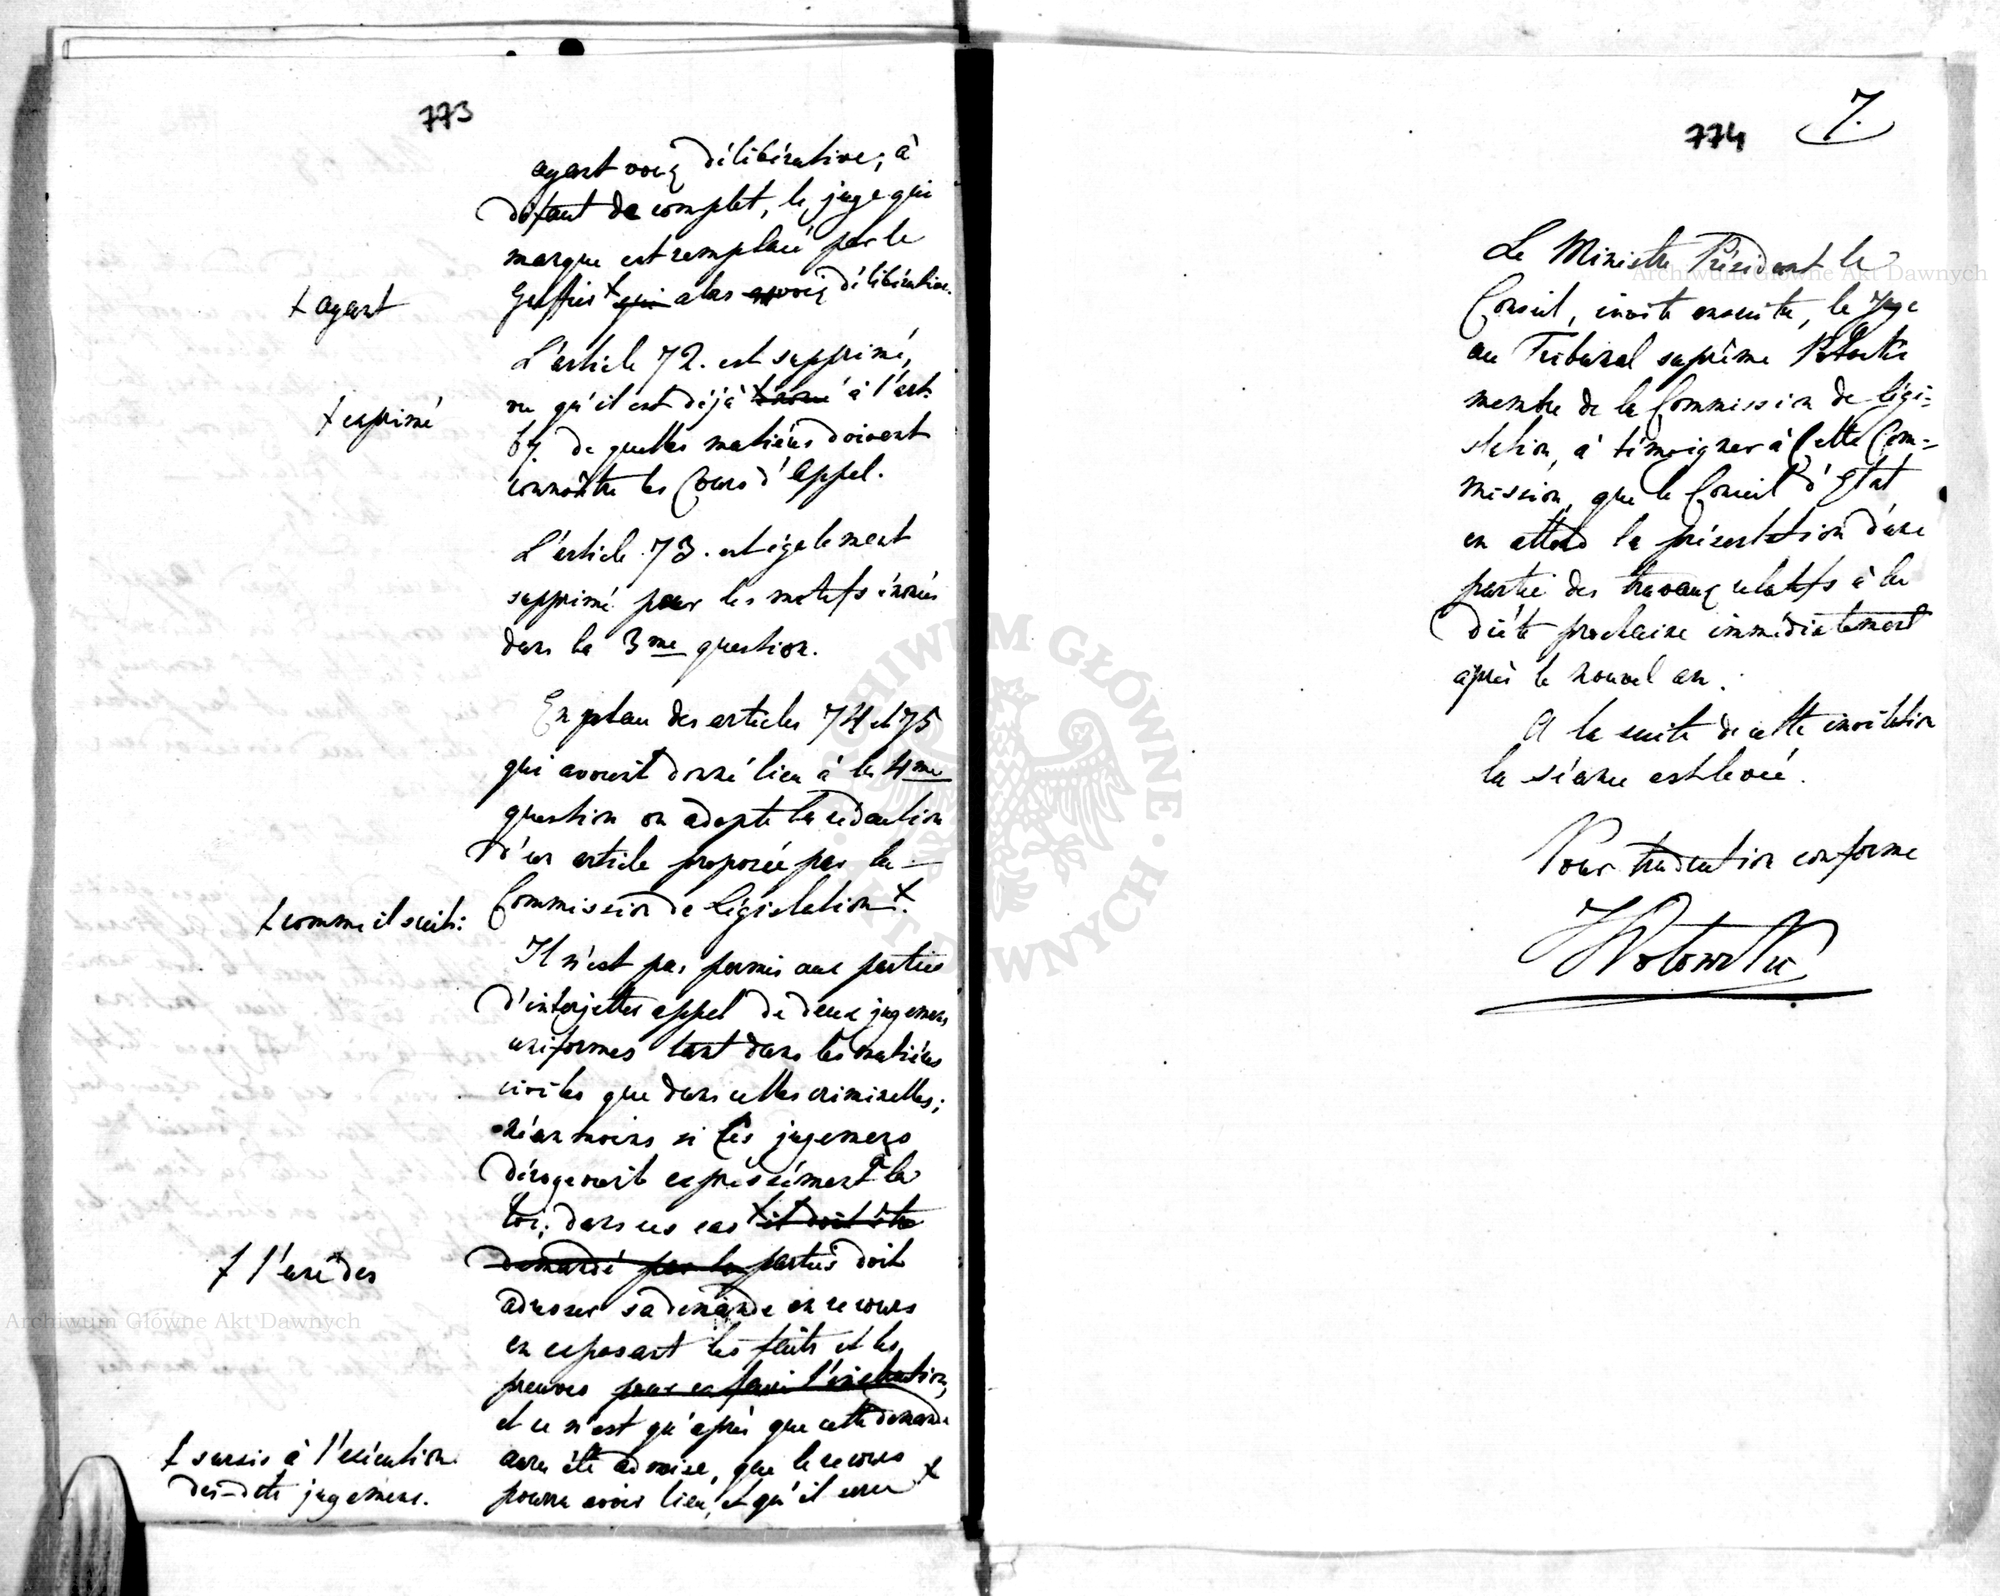 773
ayant voix délibérative; à
défaut de complet, le juge qui
manque est remplacé par le
Greffier + qui alors a voix délibérative.
+ ayant
L'article 72. est supprimé,
vu qu'il est déjà + énoncé à l'art.
+ exprimé
69. de quelles matières doivent
connoître les Cours d'Appel.
L'article 73. est également
supprimé pour les motifs énoncés
dans la 3me question.
En place des articles 74 et 75
qui avoient donné lieu à la 4me
question on adopte la rédaction
d'un article proposée par la
Commission de Législation +.
+ comme il suit:
Il n'est pas permis aux parties
d'interjetter appel de deux jugemens
uniformes tant dans les matières
civiles que dans celles criminelles;
néanmoins si les jugemens
dérogeoient expréssément à la
loi; dans ces cas + il doit être
demandé par la parties doit
+ l'une des
adresser sa demande en recours
en exposant les faits et les
preuves pour en faire l'
et ce n'est qu'après que cette demande
aura été admise, que le recours
pourra avoir lieu, et qu'il sera +
+ sursis à l'exécution
des-dits jugemens.
774
7.
Le Ministre Président le
Conseil, invite ensuite, le Juge
au Tribunal suprême
membre de la Commission de Légi-
slation, à témoigner à Cette Com-
mission, que le Conseil d'Etat
en attend la présentation d'une
partie des travaux relatifs à la
diète prochaine immédiatement
après le nouvel an.
A la suite de cette invitation
la séance est levée.
Pour traduction conforme
Archiwum Główne Akt Dawnych
Archiwum Główne Akt Dawnych
ARCHIWUM GŁÓWNE AKT DAWNYCH